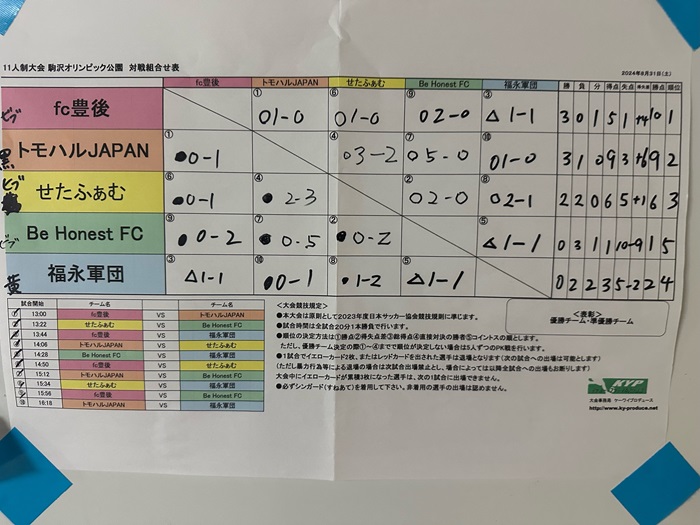 11人制大会 駒沢オリンピック公園 対戦組合せ表 2024年8月31日(土)
fc豊後 トモハルJAPAN せたふぁむ Be Honest FC 福永軍団 勝 負 分 得点 失点 得失差 勝点 順位
ビブ fc豊後 ① ○1-0 ⑥ ○1-0 ⑨ ○2-0 ③ △1-1 3 0 1 5 1 +4 10 1
黒 トモハルJAPAN ① ●0-1 ④ ○3-2 ⑦ ○5-0 ⑩ ○1-0 3 1 0 9 3 +6 9 2
ビブ せたふぁむ ⑥ ●0-1 ④ ●2-3 ② ○2-0 ⑧ ○2-1 2 2 0 6 5 +1 6 3
ビブ Be Honest FC ⑨ ●0-2 ⑦ ●0-5 ② ●0-2 ⑤ △1-1 0 3 1 1 10 -9 1 5
黄 福永軍団 ③ △1-1 ⑩ ●0-1 ⑧ ●1-2 ⑤ △1-1 0 2 2 3 5 -2 2 4
試合開始 チーム名 チーム名
① 13:00 fc豊後 VS トモハルJAPAN
② 13:22 せたふぁむ VS Be Honest FC
③ 13:44 fc豊後 VS 福永軍団
④ 14:06 トモハルJAPAN VS せたふぁむ
⑤ 14:28 Be Honest FC VS 福永軍団
⑥ 14:50 fc豊後 VS せたふぁむ
⑦ 15:12 トモハルJAPAN VS Be Honest FC
⑧ 15:34 せたふぁむ VS 福永軍団
⑨ 15:56 fc豊後 VS Be Honest FC
⑩ 16:18 トモハルJAPAN VS 福永軍団
<大会競技規定>
●本大会は原則として2023年度日本サッカー協会競技規則に準じます。
●試合時間は全試合20分1本勝負で行います。
●順位の決定方法は①勝点②得失点差③総得点④直接対決の勝者⑤コイントスの順とします。
ただし、優勝チーム決定の際①～④までで順位が決定しない場合は5人ずつのPK戦を行います。
●1試合でイエローカード2枚、またはレッドカードを出された選手は退場となります(次の試合への出場は可能とします)
(ただし暴力行為等による退場の場合は次試合出場禁止とし、場合によっては以降全試合への出場もお断りします)
大会中にイエローカードが累積3枚になった選手は、次の1試合に出場できません。
●必ずシンガード(すねあて)を着用して下さい。非着用の選手の出場は認めません。
<表彰>
優勝チーム・準優勝チーム
KYP
大会事務局 ケーワイプロデュース
http://www.ky-produce.net